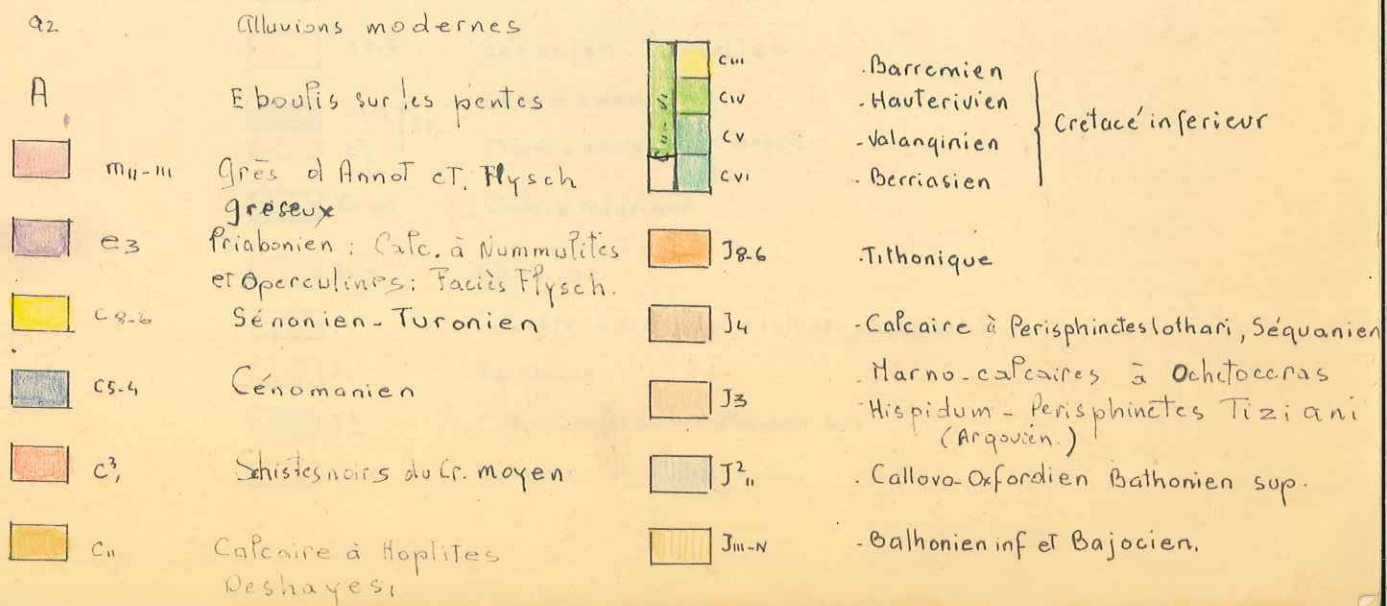 a2 Alluvions modernes
A Eboulis sur les pentes
mII-III Grès d Annot eT. Flysch
greseux
e3 Priabonien : Calc. à Nummulites
et Operculines: Faciès Flysch.
c8-6 Sénonien-Turonien
c5-4 Cénomanien
c³, Schistes noirs du Cr. moyen
cII Calcaire à Hoplites
Deshayesi
CIII .Barremien
CIV .Hauterivien
CV -Valanginien
CVI . Berriasien
Crétacé inferieur
J8-6 .Tithonique
J4 -Calcaire à Perisphincteslothari, Séquanien
J3 . Marno-calcaires à Ochctoceras
Hispidum - Perisphinctes Tiziani
(Argovien.)
J²II . Callovo-Oxfordien Bathonien sup.
JIII-IV -Bathonien inf eT Bajocien.